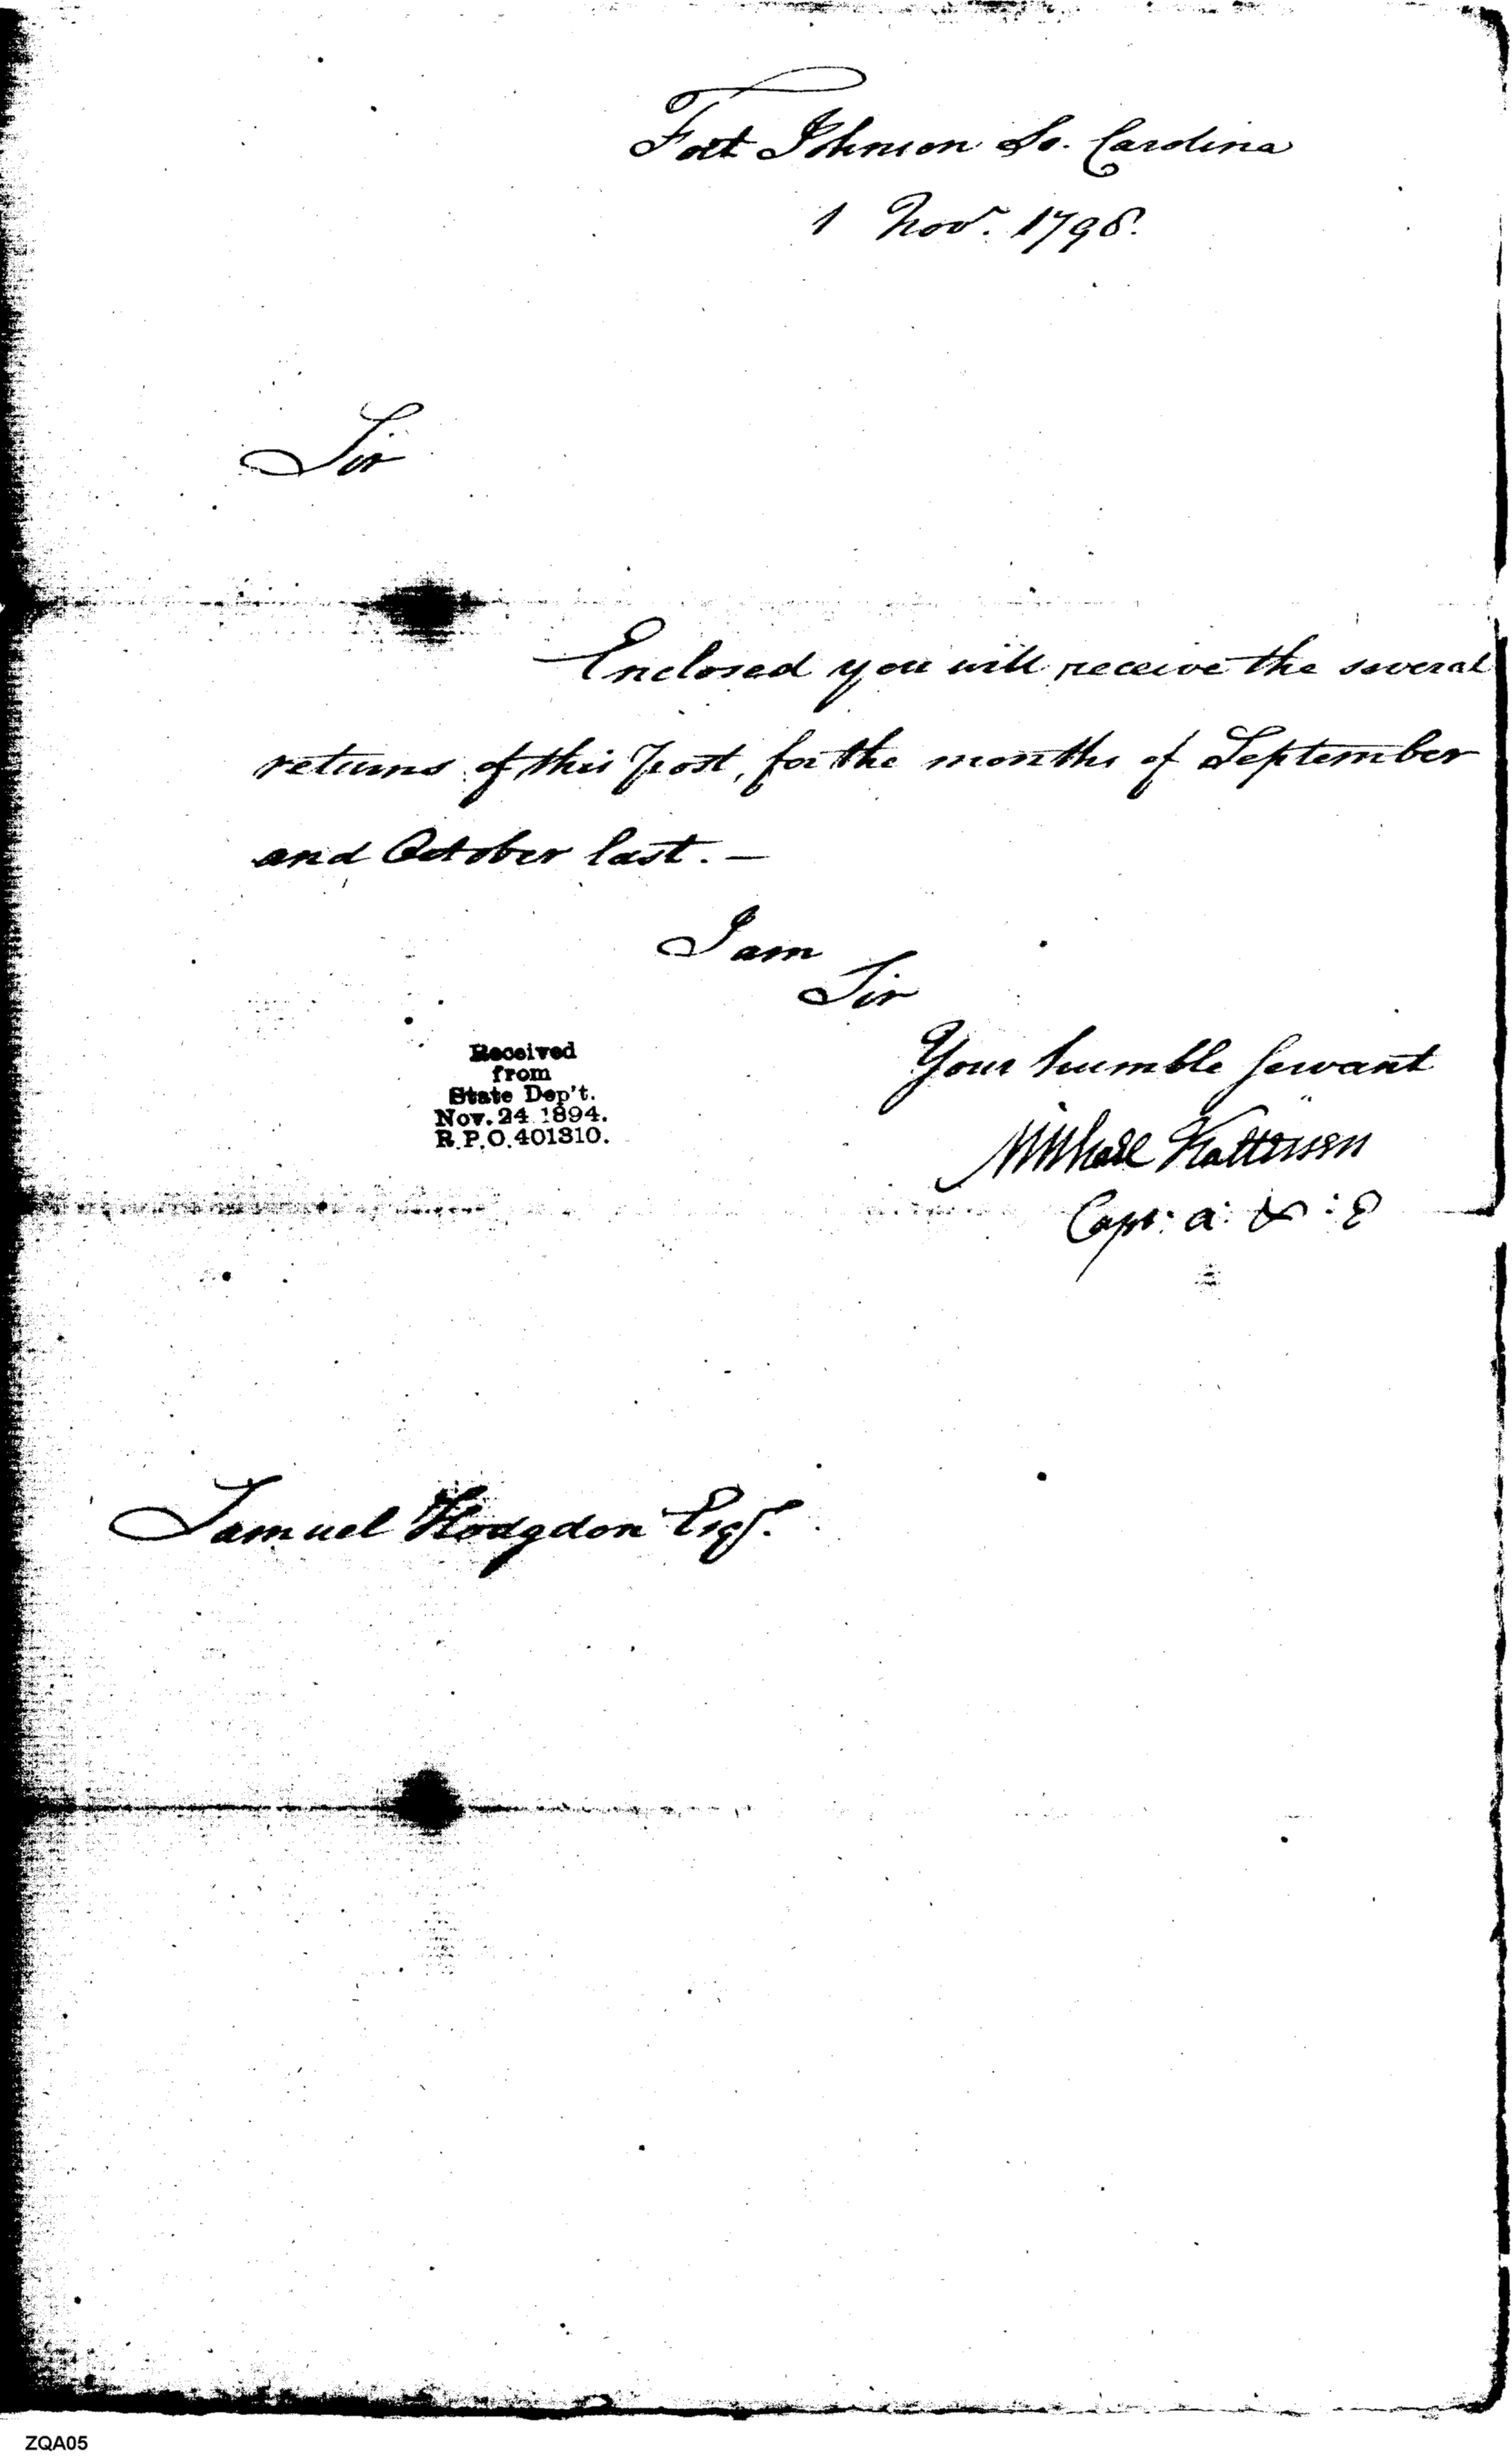 Fort Johnson So. Carolina
1 Nov. 1798.
Sir
Enclosed you will receive the several
returns of this Post, for the months of September
and October last. —
I am
Sir
Your humble Servant
Michael Kalteisen
Capt: A: & : E
Received
from
State Dep't.
Nov. 24 1894.
R.P.O. 401310.
Samuel Hodgdon Esqr.
ZQA05